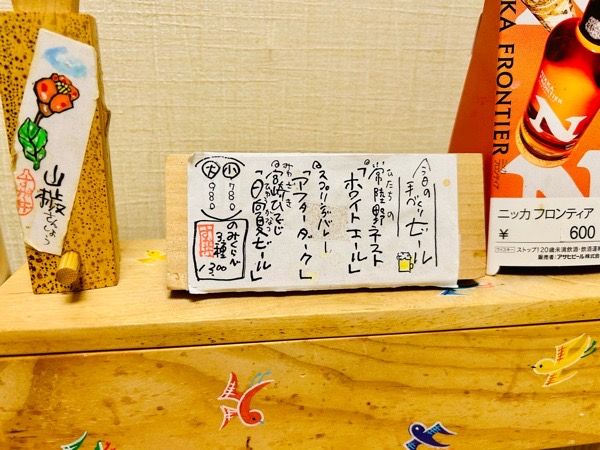 山椒
さんしょう
今日の
手づくりビール
ひたちの
常陸野ネスト
「ホワイトエール」
スプリングバレー
「アフターダーク」
みやざき
宮崎ひでじ
ひゅうがなつ
「日向夏ビール」
小 780
大 980
のみくらべ
3種
1,300
KA FRONTIER
N
ニッカ フロンティア
¥ 600
ストップ!20歳未満飲酒・飲酒運転
販売者:アサヒビール株式会